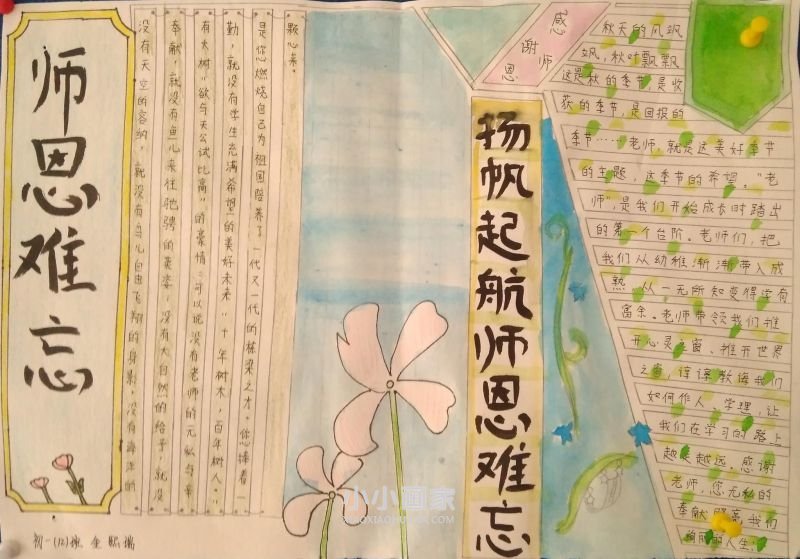 师恩难忘
没有天空的容纳，就没有鸟儿自由飞翔的身影，没有海洋的
奉献，就没有鱼儿来往驰骋的英姿，没有大自然的给予，就没
有大树“欲与天公试比高”的豪情…可以说没有老师的无私与辛
勤，就没有学生充满希望的美好未来“十年树木，百年树人。
是您燃烧自己为祖国培养了一代又一代的栋梁之才。您捧着一
颗心来。
初一(12)班
扬帆起航师恩难忘
感谢师恩
秋天的风飒
飒，秋叶飘飘
这是秋的季节，是收
获的季节，是回报的
季节……老师，就是这美好季节
的主题，这季节的希望。“老
师”，是我们开始成长时踏出
的第一个台阶。老师们，把
我们从幼稚渐渐带入成
熟。从一无所知变得学有
富余。老师带领我们推
开心灵之窗、推开世界
之窗，谆谆教诲我们
如何作人、学理，让
我们在学习的路上
越走越远。感谢
老师，您无私的
奉献照亮我而
绚丽的人生！
小小画家
XIAOXIAOHUAJIA.COM